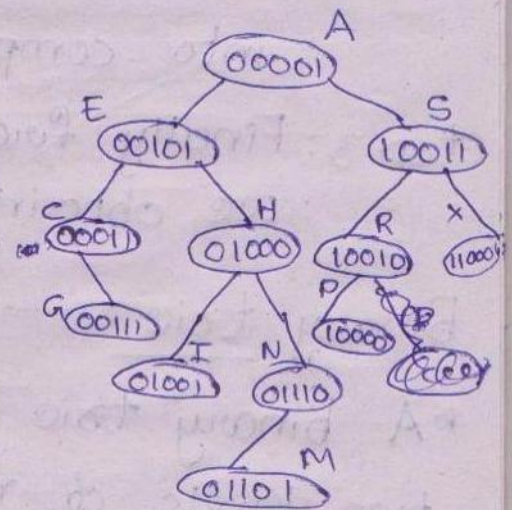 A
00001
E
00101
S
10011
C
00011
H
01000
R
10010
X
11000
G
00111
I
01001
N
01110
P
10000
M
01101